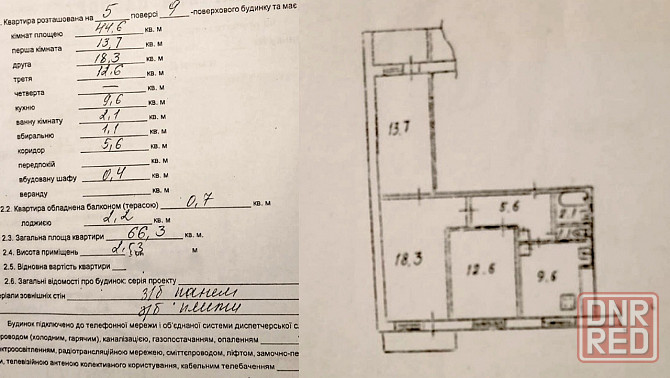 . Квартира розташована на 5 поверсі 9 -поверхового будинку та має
кімнат площею 44,6 кв. м
перша кімната 13,7 кв. м
друга 18,3 кв. м
третя 12,6 кв. м
четверта — кв. м
кухню 9,6 кв. м
ванну кімнату 2,1 кв. м
вбиральню 1,1 кв. м
коридор 5,6 кв. м
передпокій кв. м
вбудовану шафу 0,4 кв. м
веранду кв. м
2.2. Квартира обладнена балконом (терасою) 0,7 кв. м
лоджією 2,2 кв. м
2.3. Загальна площа квартири 66,3 кв. м.
2.4. Висота приміщень м
2.5. Відновна вартість квартири
2.6. Загальні відомості про будинок: серія проекту
еріали зовнішніх стін з/б панели
з/б плити
Будинок підключено до телефонної мережи і об'єднаної системи диспетчерської с
роводом (холодним, гарячим), каналізацією, газопостачанням, опаленням
ектроосвітленням, радіотрансляційною мережею, сміттєпроводом, ліфтом, замочно-пе
и, телевізійною антеною колективного користування, кабельним телебаченням
13.7
5.6
2.1
18.3
12.6
9.6
DNR
RED